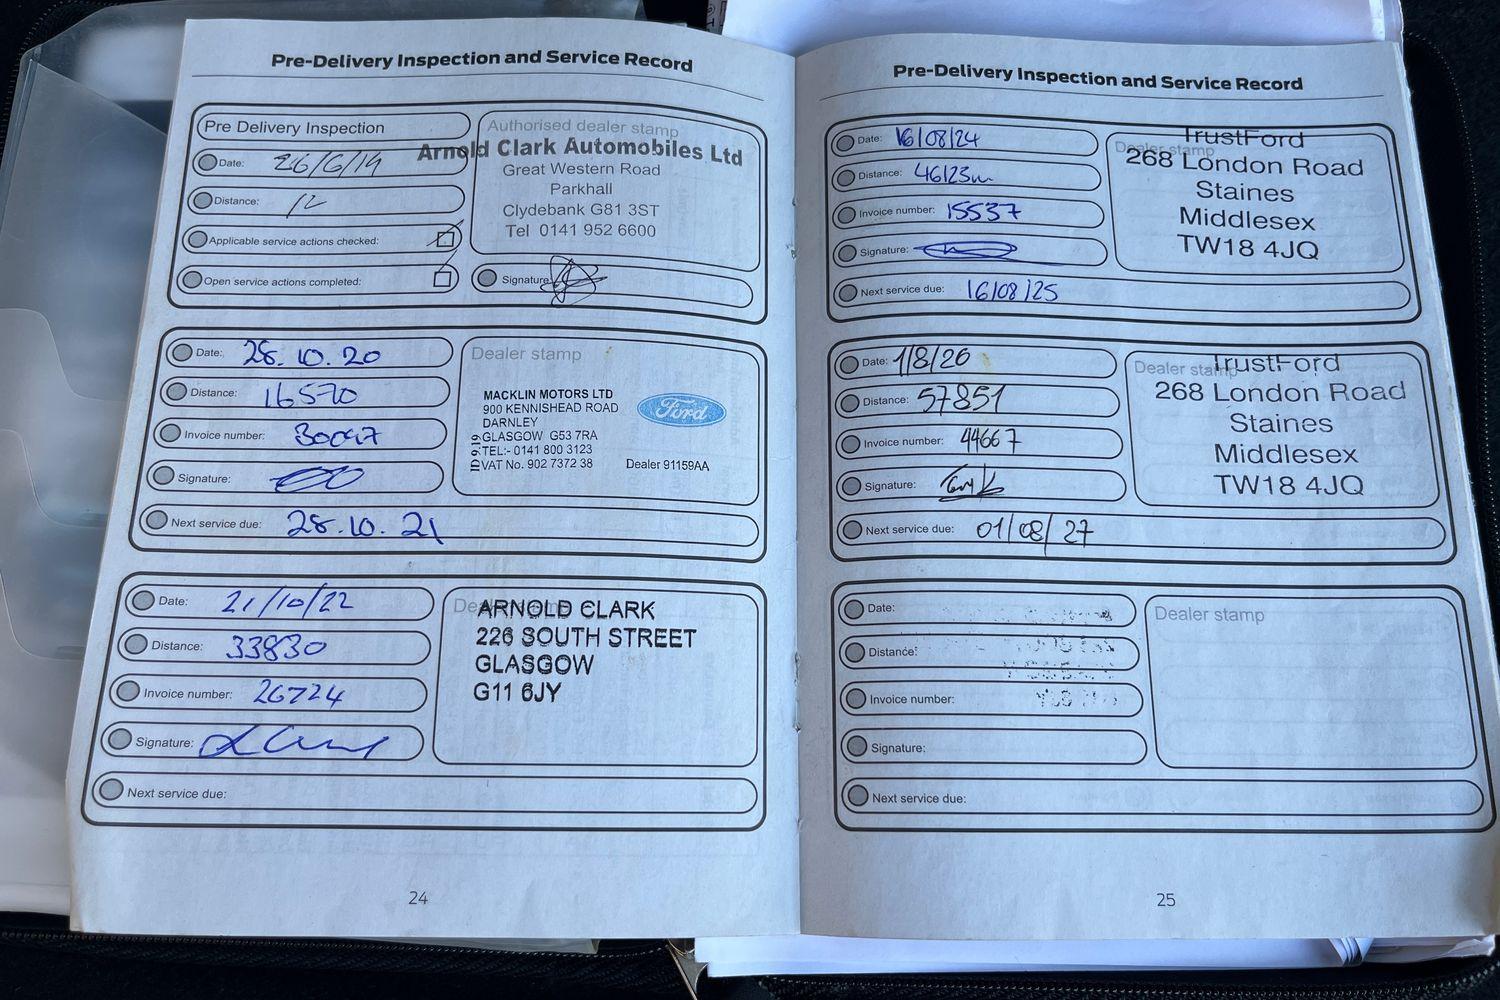 Pre-Delivery Inspection and Service Record
Pre Delivery Inspection
Date: 26/6/19
Distance: 12
Applicable service actions checked:
Open service actions completed:
Authorised dealer stamp
Arnold Clark Automobiles Ltd
Great Western Road
Parkhall
Clydebank G81 3ST
Tel 0141 952 6600
Signature:
Date: 28.10.20
Distance: 16570
Invoice number: 30047
Signature:
Next service due: 28.10.21
Dealer stamp
MACKLIN MOTORS LTD
900 KENNISHEAD ROAD
DARNLEY
GLASGOW G53 7RA
TEL:- 0141 800 3123
VAT No. 902 7372 38
Dealer 91159AA
Ford
Date: 21/10/22
Distance: 33830
Invoice number: 26724
Signature:
Next service due:
Dealer stamp
ARNOLD CLARK
226 SOUTH STREET
GLASGOW
G11 6JY
24
Pre-Delivery Inspection and Service Record
Date: 16/08/24
Distance: 46123m
Invoice number: 15537
Signature:
Next service due: 16/08/25
Dealer stamp
TrustFord
268 London Road
Staines
Middlesex
TW18 4JQ
Date: 1/8/26
Distance: 57851
Invoice number: 44667
Signature:
Next service due: 01/08/27
Dealer stamp
TrustFord
268 London Road
Staines
Middlesex
TW18 4JQ
Date:
Distance:
Invoice number:
Signature:
Next service due:
Dealer stamp
25